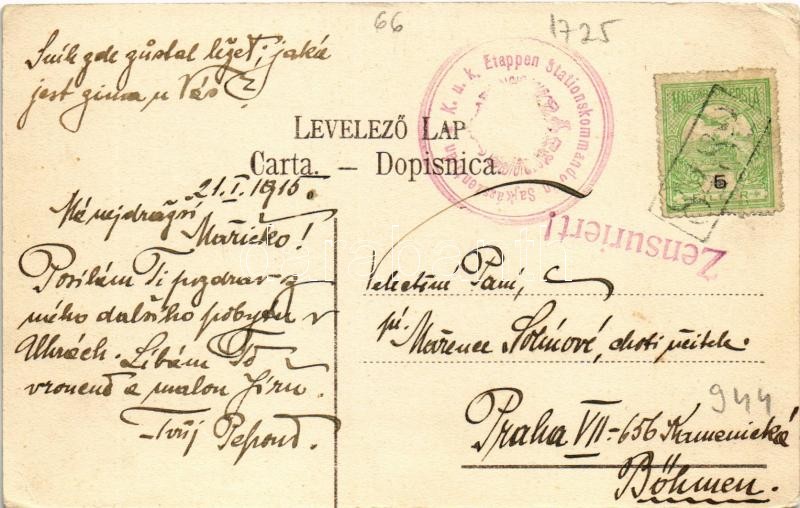 66
1725
Sníh zde zůstal ležet; jaká
jest zima u Vás?
K. u. k. Etappen Stationskommando in Sajkásszentiván
MAGYAR KIR. POSTA
5
LEVELEZŐ LAP
Carta. – Dopisnica.
Zensuriert!
21.I.1915.
Má nejdražší
Mařičko!
Posílám Ti pozdrav z
mého dalšího pobytu v
Uhrách. Líbám Tě
vroucně a malou Jiřu.
Tvůj Pepouš.
Velectěné Paní,
pí. Mařence Solínové, choti učitele.
944
Praha VII – 656 Kamenická
Böhmen.